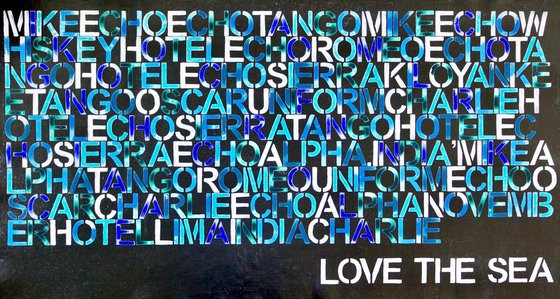 MIKEECHOECHOTANGOMIKEECHOW
HISKEYHOTELECHOROMEOECHOTA
NGOHOTELECHOSIERRAKILOYANKE
ETANGOOSCARUNIFORMCHARLIEH
OTELECHOSIERRATANGOHOTELEC
HOSIERRAECHOALPHA,INDIA'MIKEA
LPHATANGOROMEOUNIFORMECHOO
SCARCHARLIEECHOALPHANOVEMB
ERHOTELLIMAINDIACHARLIE
LOVE THE SEA